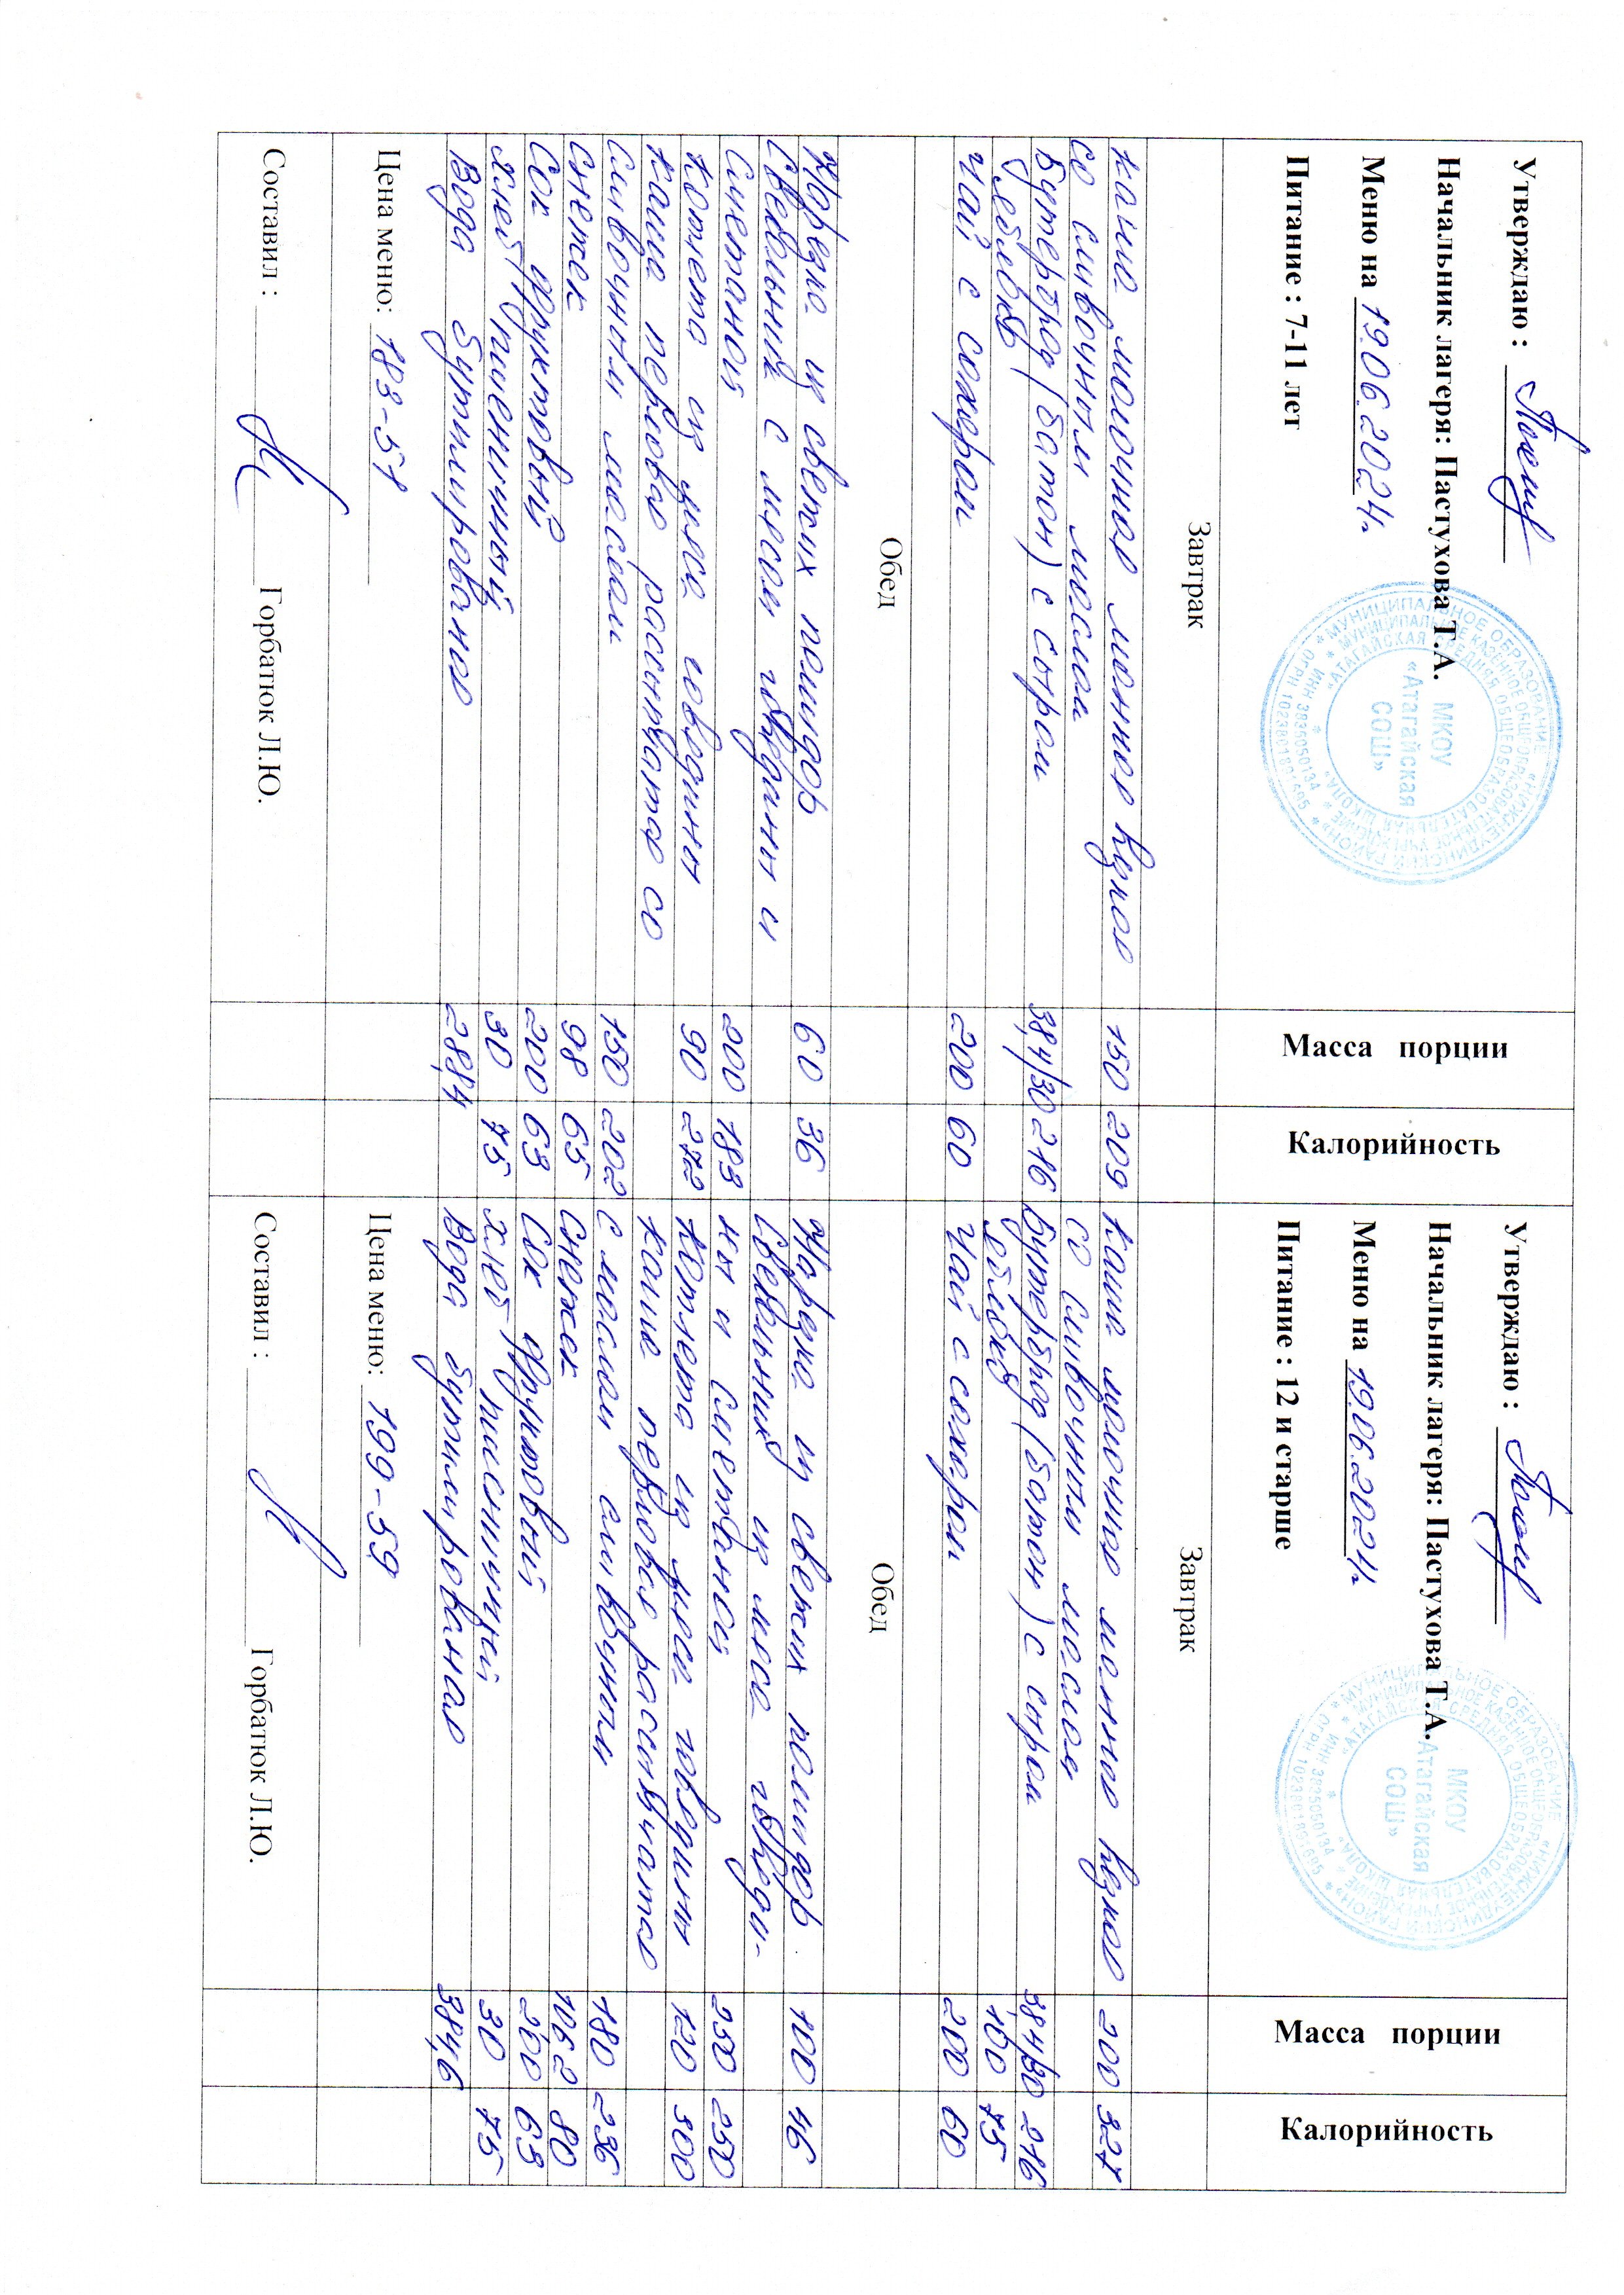 Утверждаю :
Начальник лагеря: Пастухова Т.А.
Меню на 19.06.2024г.
Питание : 7-11 лет
Масса порции
Калорийность
Завтрак
каша молочная манная жидкая 150 209
со сливочным маслом
Бутерброд (батон) с сыром 38,4/30 216
Чай с сахаром 200 60
Обед
Нарезка из свежих помидор 60 36
Свекольник с мясом говядины и
сметаной 200 183
котлета из мяса говядины 90 272
каша перловая рассыпчатая со
сливочным маслом 150 202
Снежок 98 65
Сок фруктовый 200 63
Хлеб пшеничный 30 75
Вода бутилированная 288,4
Цена меню: 183-51
Составил : Горбатюк Л.Ю.
МУНИЦИПАЛЬНОЕ ОБРАЗОВАНИЕ «НИЖНЕУДИНСКИЙ РАЙОН»
МКОУ
«Атагайская
СОШ»
Утверждаю :
Начальник лагеря: Пастухова Т.А.
Меню на 19.06.2024г.
Питание : 12 и старше
Масса порции
Калорийность
Завтрак
каша молочная манная жидкая 200 327
со сливочным маслом
Бутерброд (батон) с сыром 38,4/30 216
яблоко 100 75
Чай с сахаром 200 60
Обед
Нарезка из свежих помидор 100 46
Свекольник из мяса говяди-
ны и сметаной 250 250
Котлета из мяса говядины 120 300
каша перловая рассыпчатая
с маслом сливочным 180 236
Снежок 106,2 80
Сок фруктовый 200 63
Хлеб пшеничный 30 75
Вода бутилированная 384,6
Цена меню: 199-59
Составил : Горбатюк Л.Ю.
МУНИЦИПАЛЬНОЕ ОБРАЗОВАНИЕ «НИЖНЕУДИНСКИЙ РАЙОН»
МКОУ
«Атагайская
СОШ»